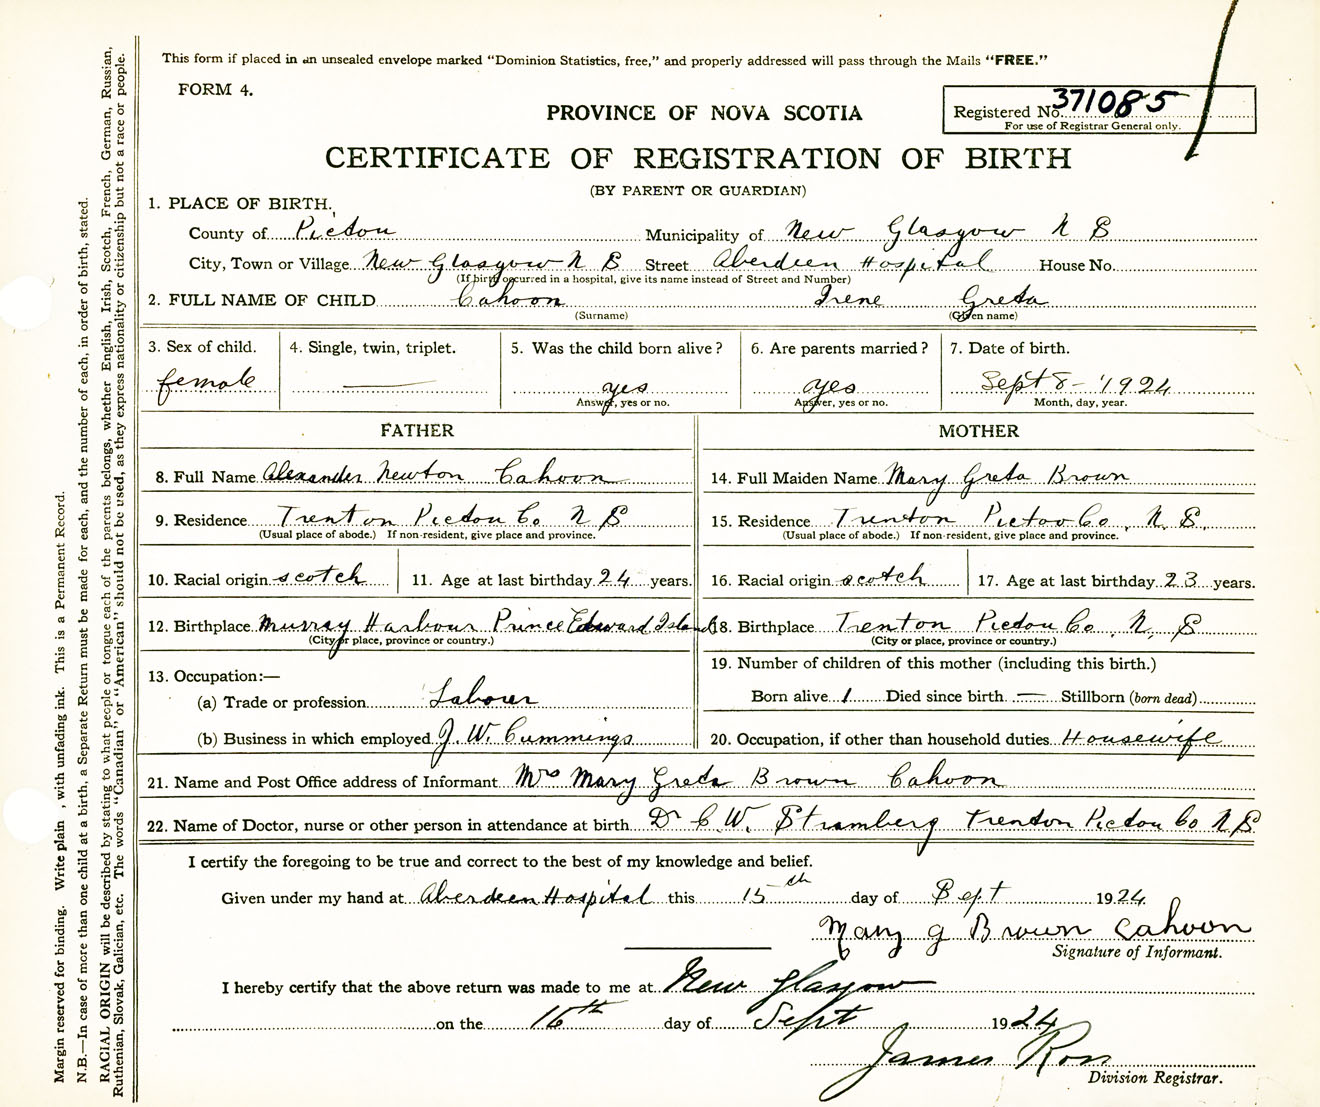 This form if placed in an unsealed envelope marked "Dominion Statistics, free," and properly addressed will pass through the Mails "FREE."
FORM 4.
PROVINCE OF NOVA SCOTIA
Registered No. 371085
For use of Registrar General only.
CERTIFICATE OF REGISTRATION OF BIRTH
(BY PARENT OR GUARDIAN)
1. PLACE OF BIRTH.
County of Pictou Municipality of New Glasgow N S
City, Town or Village New Glasgow N S Street Aberdeen Hospital House No.
(If birth occurred in a hospital, give its name instead of Street and Number)
2. FULL NAME OF CHILD Cahoon Irene Greta
(Surname) (Given name)
3. Sex of child. 4. Single, twin, triplet. 5. Was the child born alive? 6. Are parents married? 7. Date of birth.
female yes yes Sept 8 - 1924
Answer, yes or no. Answer, yes or no. Month, day, year.
FATHER MOTHER
8. Full Name Alexander Newton Cahoon 14. Full Maiden Name Mary Greta Brown
9. Residence Trenton Pictou Co N S 15. Residence Trenton Pictou Co, N. S.
(Usual place of abode.) If non-resident, give place and province. (Usual place of abode.) If non-resident, give place and province.
10. Racial origin scotch 11. Age at last birthday 24 years. 16. Racial origin scotch 17. Age at last birthday 23 years.
12. Birthplace Murray Harbour Prince Edward Island 18. Birthplace Trenton Pictou Co, N, S
(City or place, province or country.) (City or place, province or country.)
13. Occupation:— 19. Number of children of this mother (including this birth.)
(a) Trade or profession Labourer Born alive 1 Died since birth — Stillborn (born dead)
(b) Business in which employed J. W. Cummings 20. Occupation, if other than household duties Housewife
21. Name and Post Office address of Informant Mrs Mary Greta Brown Cahoon
22. Name of Doctor, nurse or other person in attendance at birth Dr C. W. Stramberg Trenton Pictou Co N S
I certify the foregoing to be true and correct to the best of my knowledge and belief.
Given under my hand at Aberdeen Hospital this 15th day of Sept 1924
Mary G Brown Cahoon
Signature of Informant.
I hereby certify that the above return was made to me at New Glasgow
on the 16th day of Sept 1924
James Ross
Division Registrar.
Margin reserved for binding. Write plain , with unfading ink. This is a Permanent Record.
N.B.—In case of more than one child at a birth, a Separate Return must be made for each, and the number of each, in order of birth, stated.
RACIAL ORIGIN will be described by stating to what people or tongue each of the parents belongs, whether English, Irish, Scotch, French, German, Russian,
Ruthenian, Slovak, Galician, etc. The words "Canadian" or "American" should not be used, as they express nationality or citizenship but not a race or people.